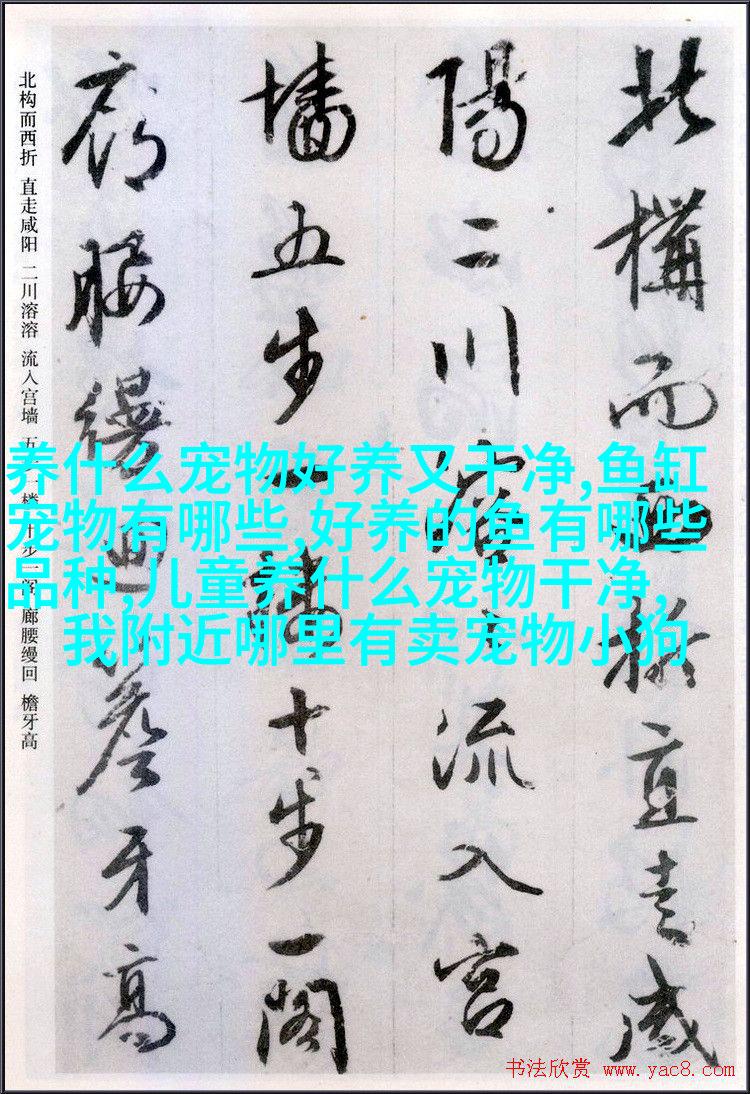 北構而西折直走咸
陽二川溶溶流入宮
墻五步一樓十步一閣
廊腰縵迴簷牙高
北构而西折 直走咸阳 二川溶溶 流入宫墙 五步一楼 十步一阁 廊腰缦回 檐牙高
养什么宠物好养又干净,鱼缸
宠物有哪些,好养的鱼有哪些
品种,儿童养什么宠物干净,
我附近哪里有卖宠物小狗
书法欣赏 www.yac8.com